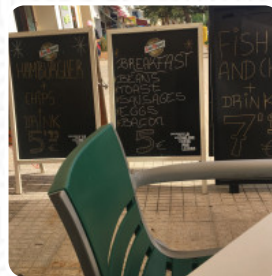 HAMBURGUER
+
CHIPS
+
DRINK
BREAKFAST
BEANS
TOAST
SAUSAGES
EGGS
BACON
5€
FISH
AND CH
+
DRINK